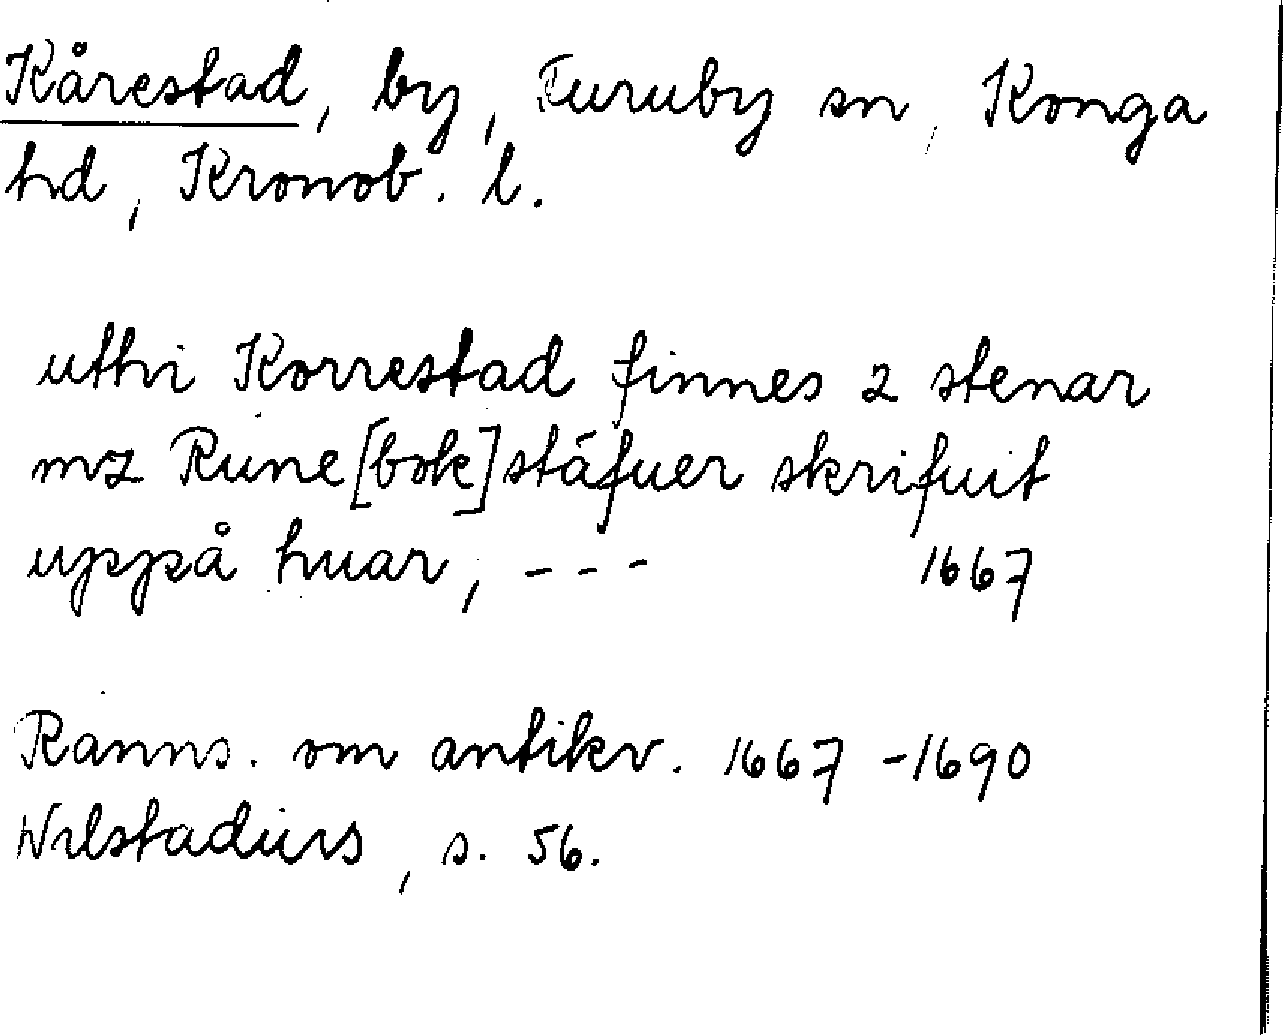 Kårestad, by, Furuby sn, Konga
hd, Kronob. l.
uthi Korrestad finnes 2 stenar
mz Rune[bok]stäfuer skrifuit
uppå huar, - - - 1667
Ranns. om antikv. 1667-1690
Wilstadius, s. 56.